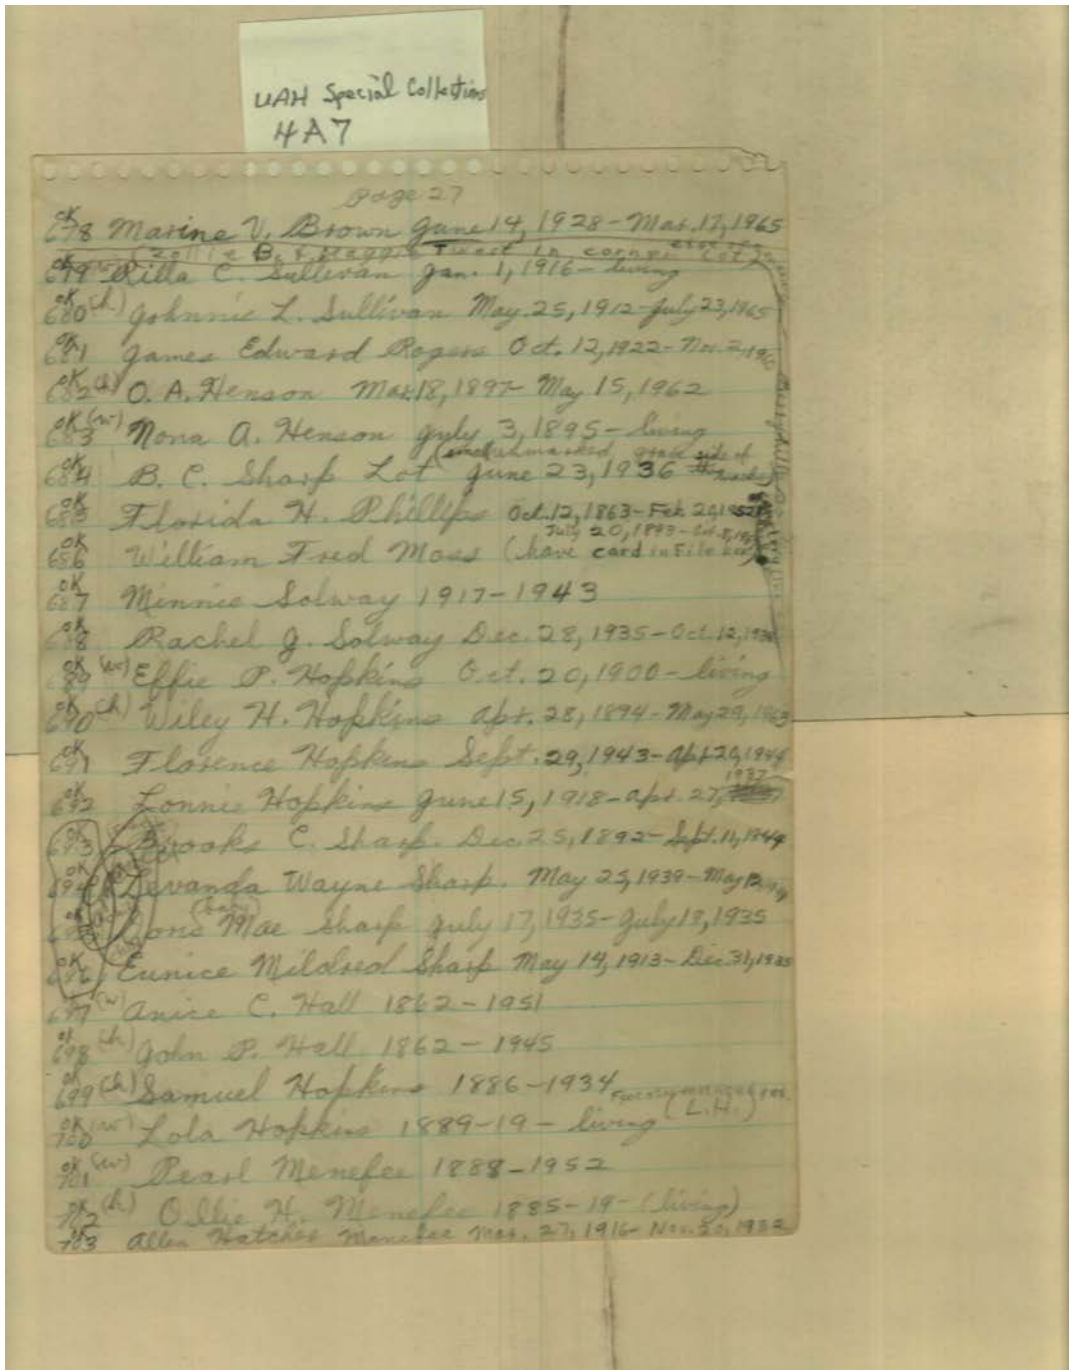 UAH Special Collections
4A7
Page 27
ok 678 Marine V. Brown June 14, 1928 - Mar. 17, 1965
B. & Maggie Tweet in corner Lot
679 (w) Rilla C. Sullivan Jan. 1, 1916 - living
ok 680 (h) Johnnie L. Sullivan May. 25, 1912 - July 23, 1965
ok 681 James Edward Rogers Oct. 12, 1922 - Nov. 2,
ok 682 (h) O. A. Henson Mar. 18, 1897 - May 15, 1962
ok 683 (w) Nona A. Henson July 3, 1895 - living
(one unmarked grave side of
ok 684 B. C. Sharp Lot June 23, 1936
ok 685 Florida H. Phillips Oct. 12, 1863 - Feb. 20, 1952
July 20, 1893 - Oct. 8,
ok 686 William Fred Moss (have card in File box)
ok 687 Minnie Solway 1917 - 1943
ok 688 Rachel J. Solway Dec. 28, 1935 - Oct. 12,
ok 689 (w) Effie P. Hopkins Oct. 20, 1900 - living
ok 690 (h) Wiley H. Hopkins Apr. 28, 1894 - May 29, 1963
ok 691 Florence Hopkins Sept. 29, 1943 - Apr. 20, 1944
1937
ok 692 Lonnie Hopkins June 15, 1918 - Apr. 27,
ok 693 Brooks C. Sharp. Dec. 25, 1892 - Sept. 11, 1949
ok 694 Levanda Wayne Sharp. May 25, 1939 - May
(baby)
ok 695 Mae Sharp July 17, 1935 - July 18, 1935
ok 696 Eunice Mildred Sharp May 14, 1913 - Dec. 31, 1935
697 (w) Anice C. Hall 1862 - 1951
ok 698 (h) John P. Hall 1862 - 1945
ok 699 (h) Samuel Hopkins 1886 - 1934
(L.H.)
ok 700 (w) Lola Hopkins 1889-19 - living
ok 701 (w) Pearl Menefee 1888 - 1952
ok 702 (h) Ollie H. Menefee 1885-19 - (living)
ok 703 Allen Hatcher Menefee Mar. 27, 1916 - Nov. 30, 1932